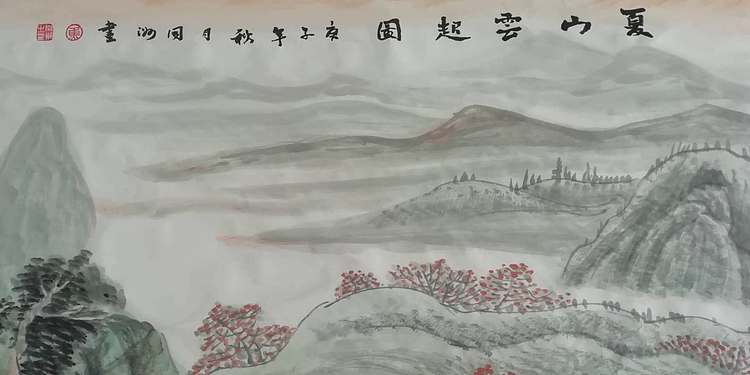 夏山雲起圖 庚子年秋月国洲畫